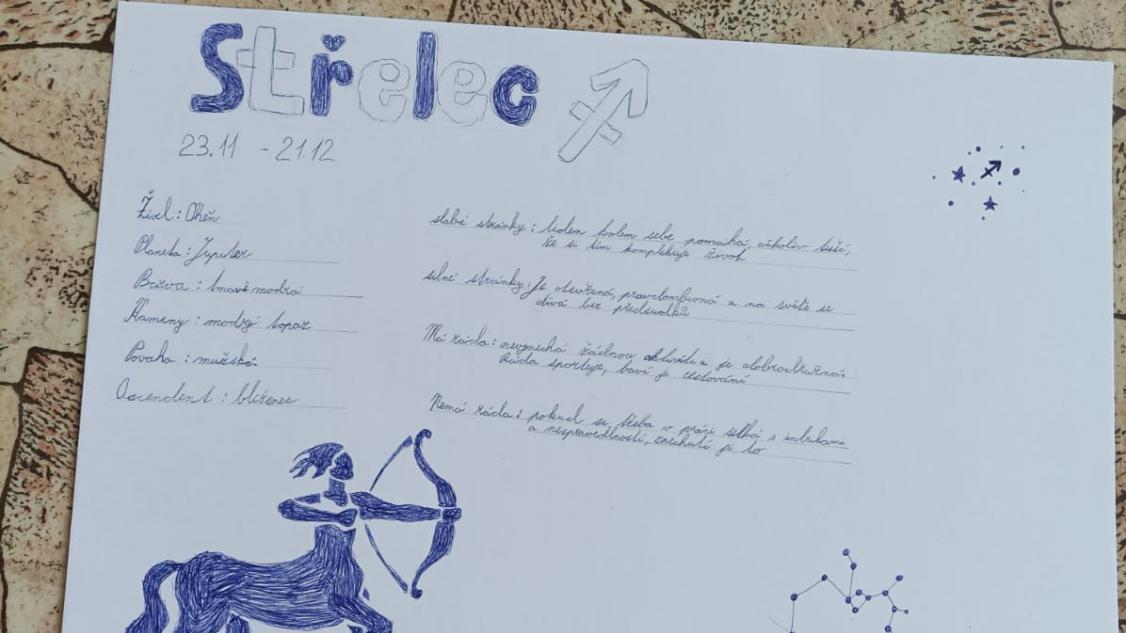 Střelec
23.11 - 21.12
Živel: Oheň
Planeta: Jupiter
Barva: tmavě modrá
Kameny: modrý topaz
Povaha: mužská
Ascendent: blíženec
slabé stránky: lidem kolem sebe pomáhá, ačkoliv tuší,
že si tím komplikuje život
silné stránky: Je otevřená, pravdomluvná a na svět se
dívá bez předsudků
Má ráda: nevynechá žádnou aktivitu a je dobrodružná
Ráda sportuje, baví ji cestování
Nemá ráda: pokud se třeba v práci setká s intrikami
a nespravedlností, znechutí ji to